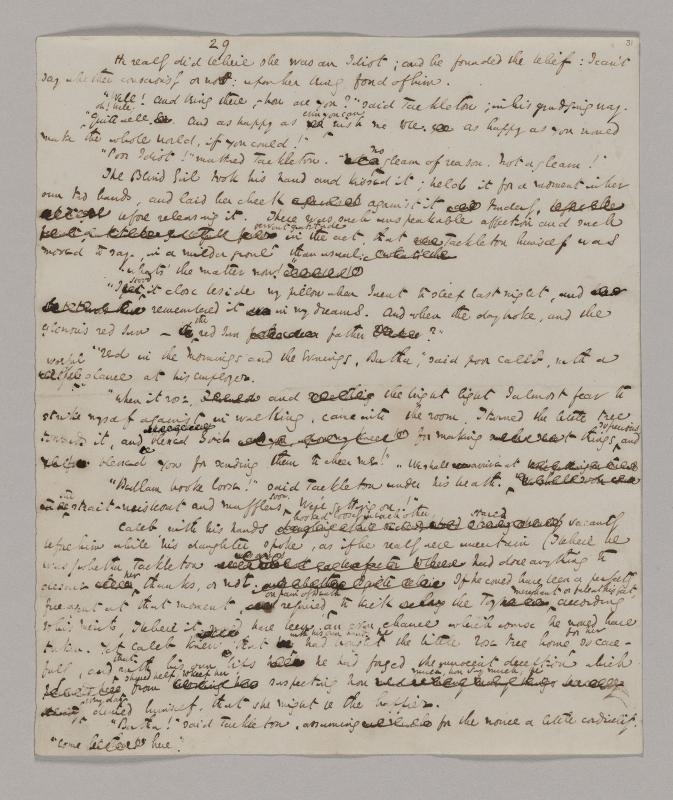 29
31
He really did believe she was an Idiot; and he founded the belief: I can't
say whether consciously or not: upon her being fond of him.
"Well! and being there, how are you?" said Tackleton; in his grudging way.
"Oh! well. Quite well. And as happy as even you can wish me to be. as happy as you would
make the whole world, if you could!"
"Poor Idiot!" muttered Tackleton. "No gleam of reason. Not a gleam!"
The Blind Girl took his hand and kissed it; held it for a moment in her
own two hands, and laid her cheek against it tenderly,
before releasing it. There was such unspeakable affection and such
fervent gratitude in the act, that Tackleton himself was
moved to say, in a milder growl than usual:
"What's the matter now?"
"I stood it close beside my pillow when I went to sleep last night, and
remembered it in my dreams. And when the day broke, and the
glorious red sun – the red sun father?"
"Red in the mornings and the evenings, Bertha," said poor Caleb, with a
woeful glance at his employer.
"When it rose, and the bright light I almost fear to
strike myself against in walking, came into the room, I turned the little tree
towards it, and blessed Heaven for making things so precious, and
blessed you for sending them to cheer me!"
"Bedlam broke loose!" said Tackleton under his breath. "We shall arrive at
the strait-waistcoat and mufflers soon. We're getting on!"
Caleb with his hands hooked loosely in each other, stared vacantly
before him while his daughter spoke, as if he really were uncertain (I believe he
was) whether Tackleton had done anything to
deserve her thanks, or not. If he could have been a perfectly
free agent at that moment, required on pain of Death to kick the Toy merchant or fall at his feet, according
to his merits, I believe it would have been an even chance which course he would have
taken. Yet Caleb knew that with his own hands he had brought the little rose tree home for her, so care-
fully, and that with his own lips he had forged the innocent deception which
should help to keep her from suspecting how much, how very much, he
every day denied himself, that she might be the happier.
"Bertha!" said Tackleton, assuming for the nonce a little cordiality.
"Come here."